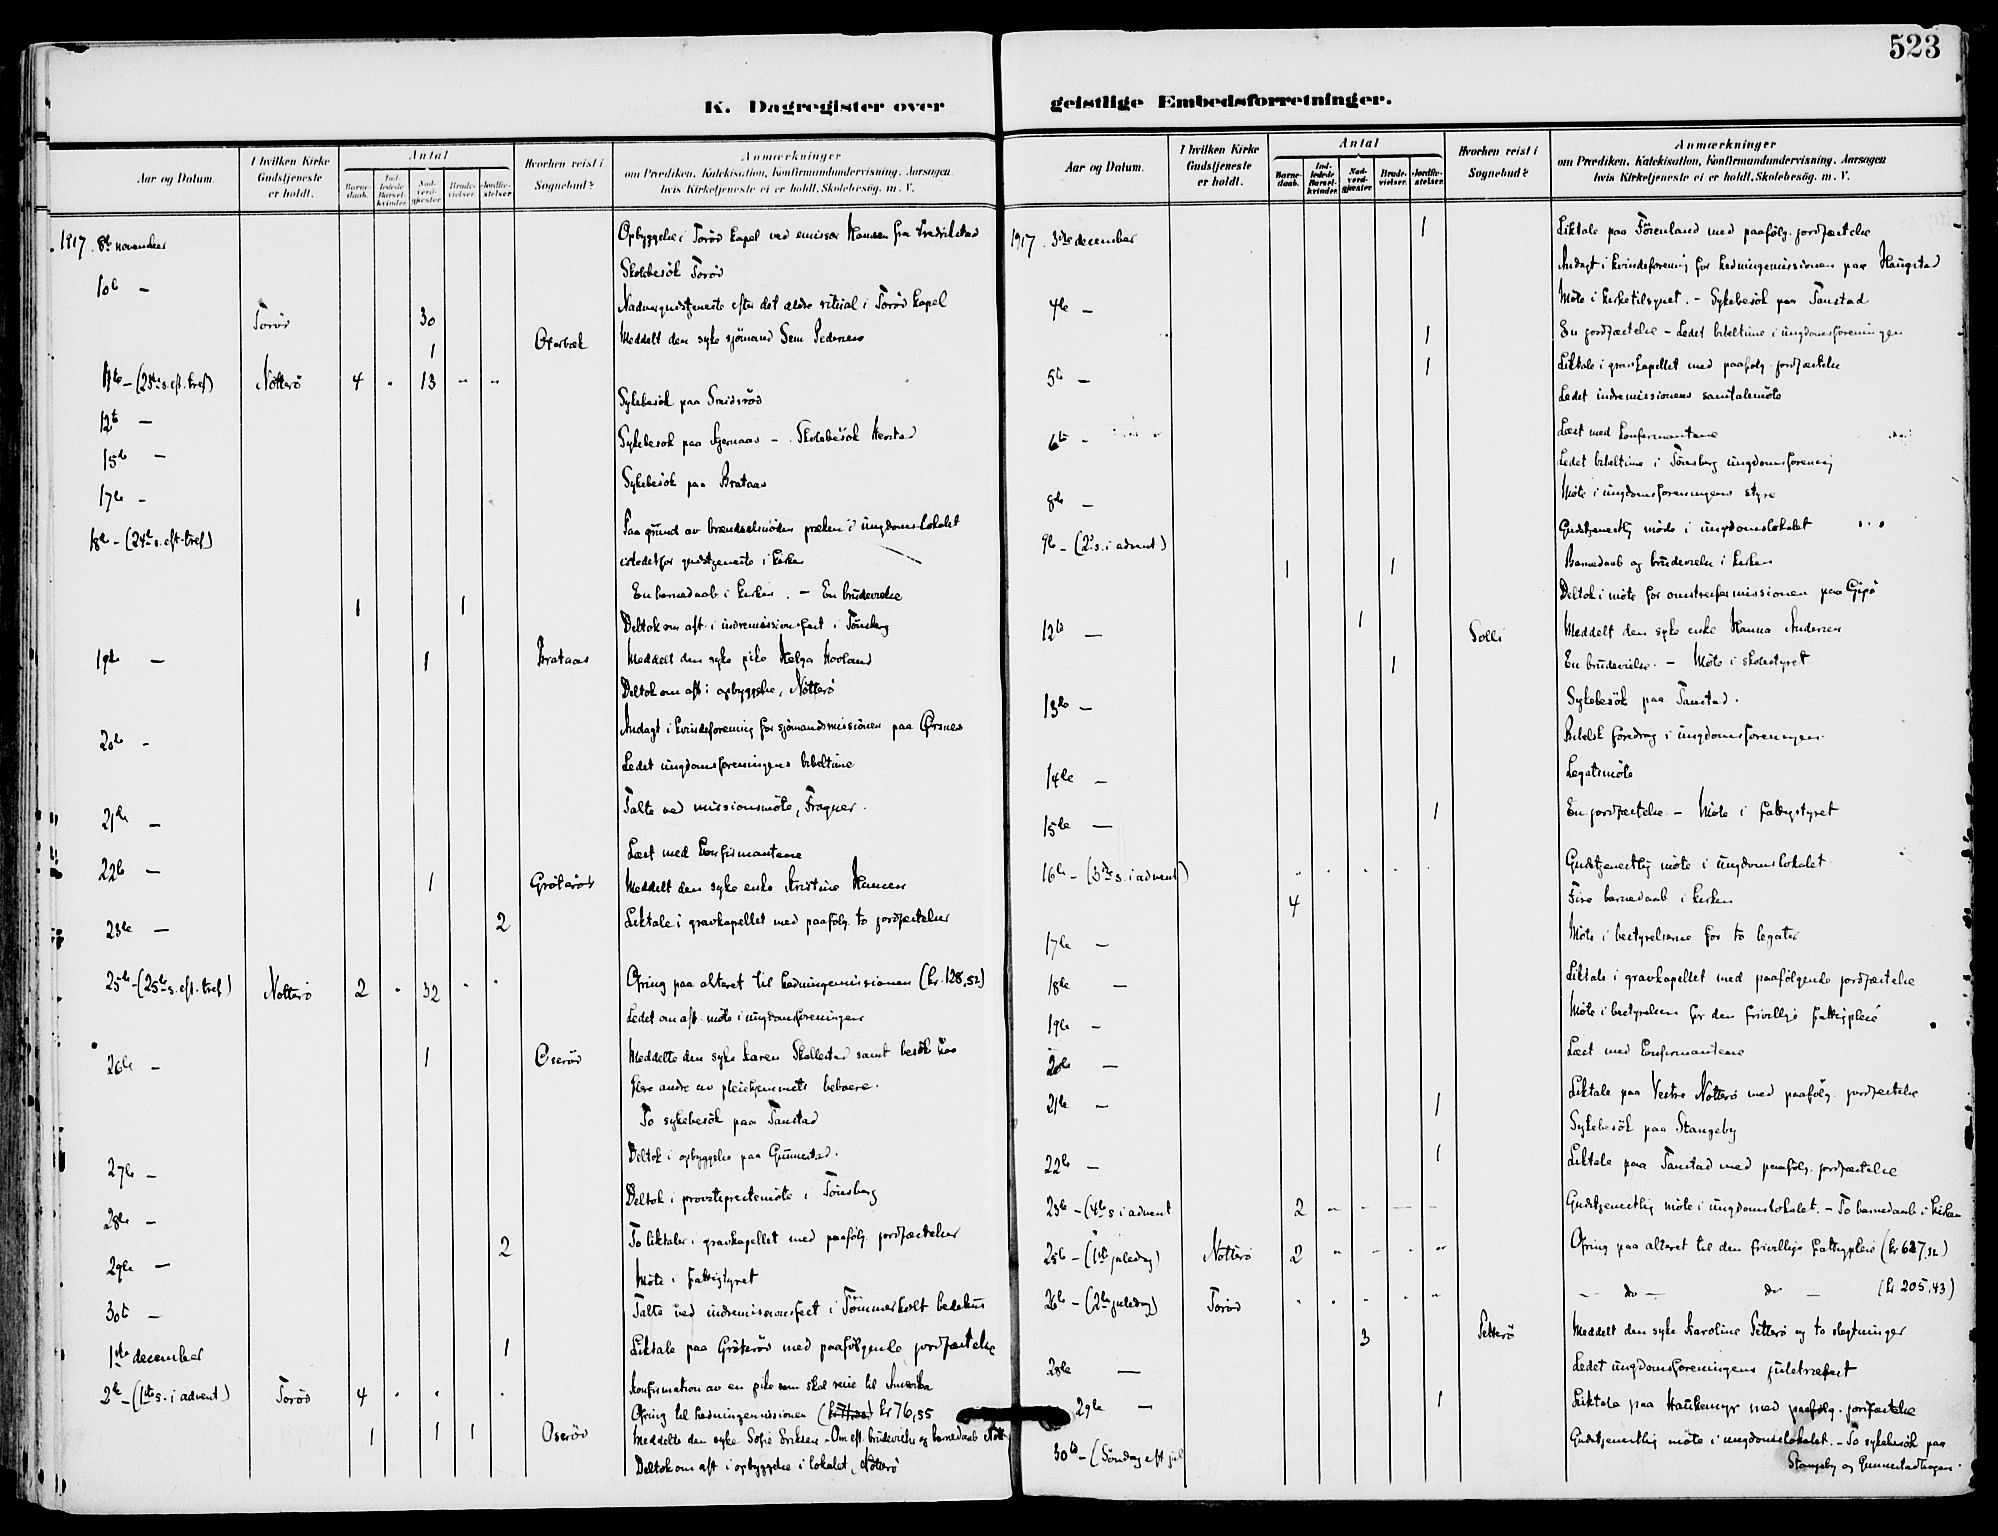 523
K. Dagregister over geistlige Embedsforretninger.
Aar og Datum.
I hvilken Kirke Gudstjeneste er holdt.
Antal
Barne-daab.
Ind-ledede Barsel-kvinder.
Nad-verd-gjæster.
Brude-vielser.
Jordfæ-stelser
Hvorhen reist i Sognebud?
Anmærkninger
om Prædiken, Katekisation, Konfirmandundervisning, Aarsagen
hvis Kirketjeneste ei er holdt, Skolebesøg. m. V.
1917. 8de november Opbyggelse i Torød kapel ved emissær Hansen fra Fredrikstad
10de – Skolebesök Torød
Torød 30 Nadvergudstjeneste efter det ældre ritual i Torød kapel
1 Meddelt den syke sjömand Sem Pedersen
11te – (23de s. eft. tref) Nötterö 4 " 13 " "
Sykebesök paa Smidsröd
12te – Sykebesök paa – Skolebesök Herstad
15de – Sykebesök paa Brataas
17de –
18de – (24de s. eft. tref) Paa grund av brændselsnöden præken i ungdomslokalet
istedetfor gudstjeneste i kirken
1 1 En barnedaab i kirken. – En brudevielse
Deltok om aft. i indremissionsfest i Tönsberg
19de – 1 Brataas Meddelt den syke pike Helga Hovland
Deltok om aft. i opbyggelse, Nötterö
20de – Andagt i kvindeforening for sjömandsmissionen paa Örsnes
Ledet ungdomsforeningens bibeltime
21de – Talte ved missionsmöte, Fragner.
22de – Læst med konfirmantene
1 Gröteröd Meddelt den syke enke Kristine Hansen
23de – 2 Liktale i gravkapellet med paafölg. to jordfæstelser
25de – (25de s. eft. tref) Nötterö 2 " 32 " " Ofring paa alteret til hedningemissionen (kr. 128,52)
Ledet om aft. möte i ungdomsforeningen
26de – 1 Oseröd Meddelte den syke Karen Skallestad samt besök hos
flere andre av pleiehjemmets beboere.
To sykebesök paa Tanstad
27de – Deltok i opbyggelse paa Gunnestad.
28de – Deltok i provstiprestemöte i Tönsberg
29de – 2 To liktaler i gravkapellet med paafölg. jordfæstelser
Möte i fattigstyret
30te – Talte ved indremissionsfest i Tömmerholt bedehus
1ste december 1 Liktale paa Gröteröd med paafölgende jordfæstelse
2de – (1ste s. i advent) Torød 4 " " " Konfirmation av en pike som skal reise til Amerika
Ofring til hedningemissionen kr 76,55
1 1 1 Oseröd Meddelte den syke Sofie Eriksen – Om eft. brudevielse og barnedaab Nött
Deltok om aft i opbyggelse i lokalet, Nötterö
Aar og Datum.
I hvilken Kirke Gudstjeneste er holdt.
Antal
Barne-daab.
Ind-ledede Barsel-kvinder.
Nad-verd-gjæster
Brude-vielser.
Jordfæ-stelser.
Hvorhen reist i Sognebud?
Anmærkninger
om Prædiken, Katekisation, Konfirmandundervisning, Aarsagen
hvis Kirketjeneste ei er holdt, Skolebesøg. m. V.
1917. 3die december 1 Liktale paa Förenland med paafölg. jordfæstelse
Andagt i kvindeforening for hedningemissionen paa Haugstad
4de – Möte i kirketilsynet. – Sykebesök paa Tanstad
1 En jordfæstelse – Ledet bibeltime i ungdomsforeningen
5te – 1 Liktale i gravkapellet med paafölg. jordfæstelse
Ledet indremissionens samtalemöte
6te – Læst med konfirmantene
Ledet bibeltime i Tönsberg ungdomsforening
8de – Möte i ungdomsforeningens styre
9de – (2de s. i advent) Gudstjenestlig möde i ungdomslokalet
1 1 Barnedaab og brudevielse i kirken
Deltok i möte for omstreifermissionen paa Gipö
12te – 1 Solli Meddelt den syke enke Hanna Andersen
1 En brudevielse. – Möte i skolestyret
13de – Sykebesök paa Tanstad.
Bibelsk foredrag i ungdomsforeningen
14de – Legatsmöte
15de – 1 En jordfæstelse – Möte i fattigstyret
16de – (3die s. i advent) Gudstjenestlig möte i ungdomslokalet.
4 Fire barnedaab i kirken
17de – Möte i bestyrelserne for to legater
18de – Liktale i gravkapellet med paafölgende jordfæstelse
19de – Möte i bestyrelsen for den frivillige fattigpleie
20de – Læst med konfirmantene
21de – 1 Liktale paa Vestre Nötterö med paafölg. jordfæstelse
Sykebesök paa Stangeby
22de – 1 Liktale paa Tanstad med paafölg. jordfæstelse
23de – (4de s. i advent 2 – – – – Gudstjenestlig möte i ungdomslokalet. – To barnedaab i kirken
25de – (1ste juledag) Nötterö 2 " " " " Ofring paa alteret til den frivillige fattigpleie (kr 627,32)
26de – (2den juledag) Torød " " " " " – do – do – (kr 205,43)
3 Petterö Meddelt den syke Karoline Petterö og to slegtninger
28de – Ledet ungdomsforeningens juletræfest
29de – 1 Liktale paa Haukemyr med paafölg. jordfæstelse
30te – (Söndag eft jul Gudstjenestlig möte i ungdomslokalet. – To sykebesök paa
Stangeby og Gunnestadhagen.